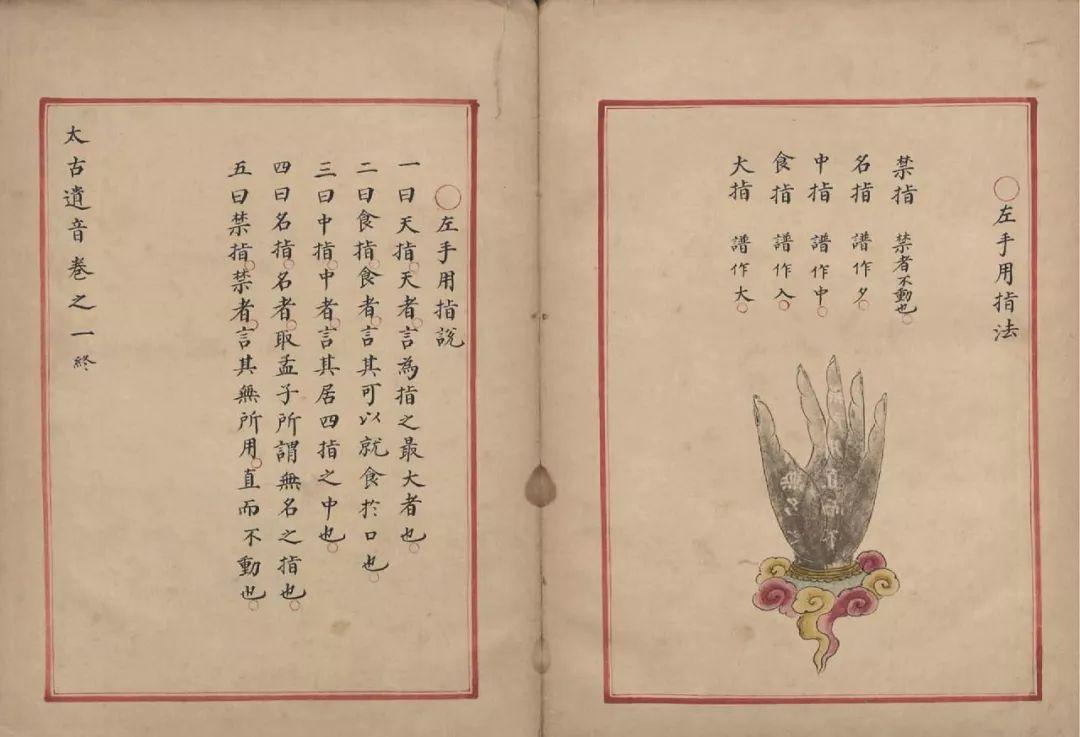 左手用指法
禁指 禁者不動也
名指 譜作夕
中指 譜作中
食指 譜作人
大指 譜作大
左手用指說
一曰天指天者言為指之最大者也
二曰食指食者言其可以就食於口也
三曰中指中者言其居四指之中也
四曰名指名者取孟子所謂無名之指也
五曰禁指禁者言其無所用直而不動也
太古遺音卷之一終